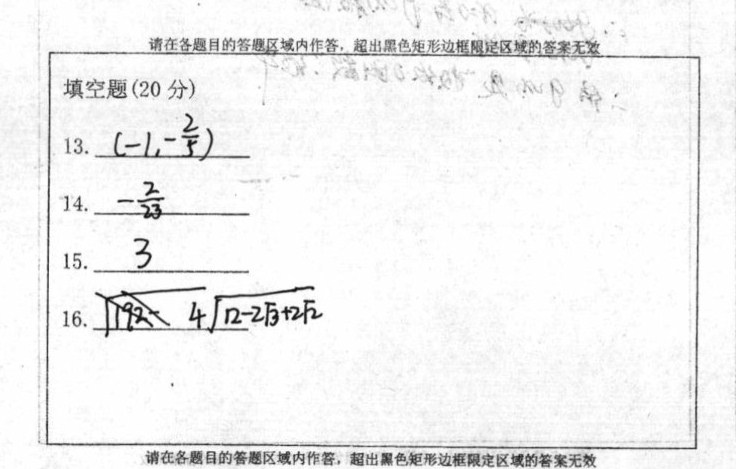 请在各题目的答题区域内作答，超出黑色矩形边框限定区域的答案无效
填空题(20 分)
13. (-1,-2/5)
14. -2/23
15. 3
16. 4√(12-2√3+2√2)
请在各题目的答题区域内作答，超出黑色矩形边框限定区域的答案无效